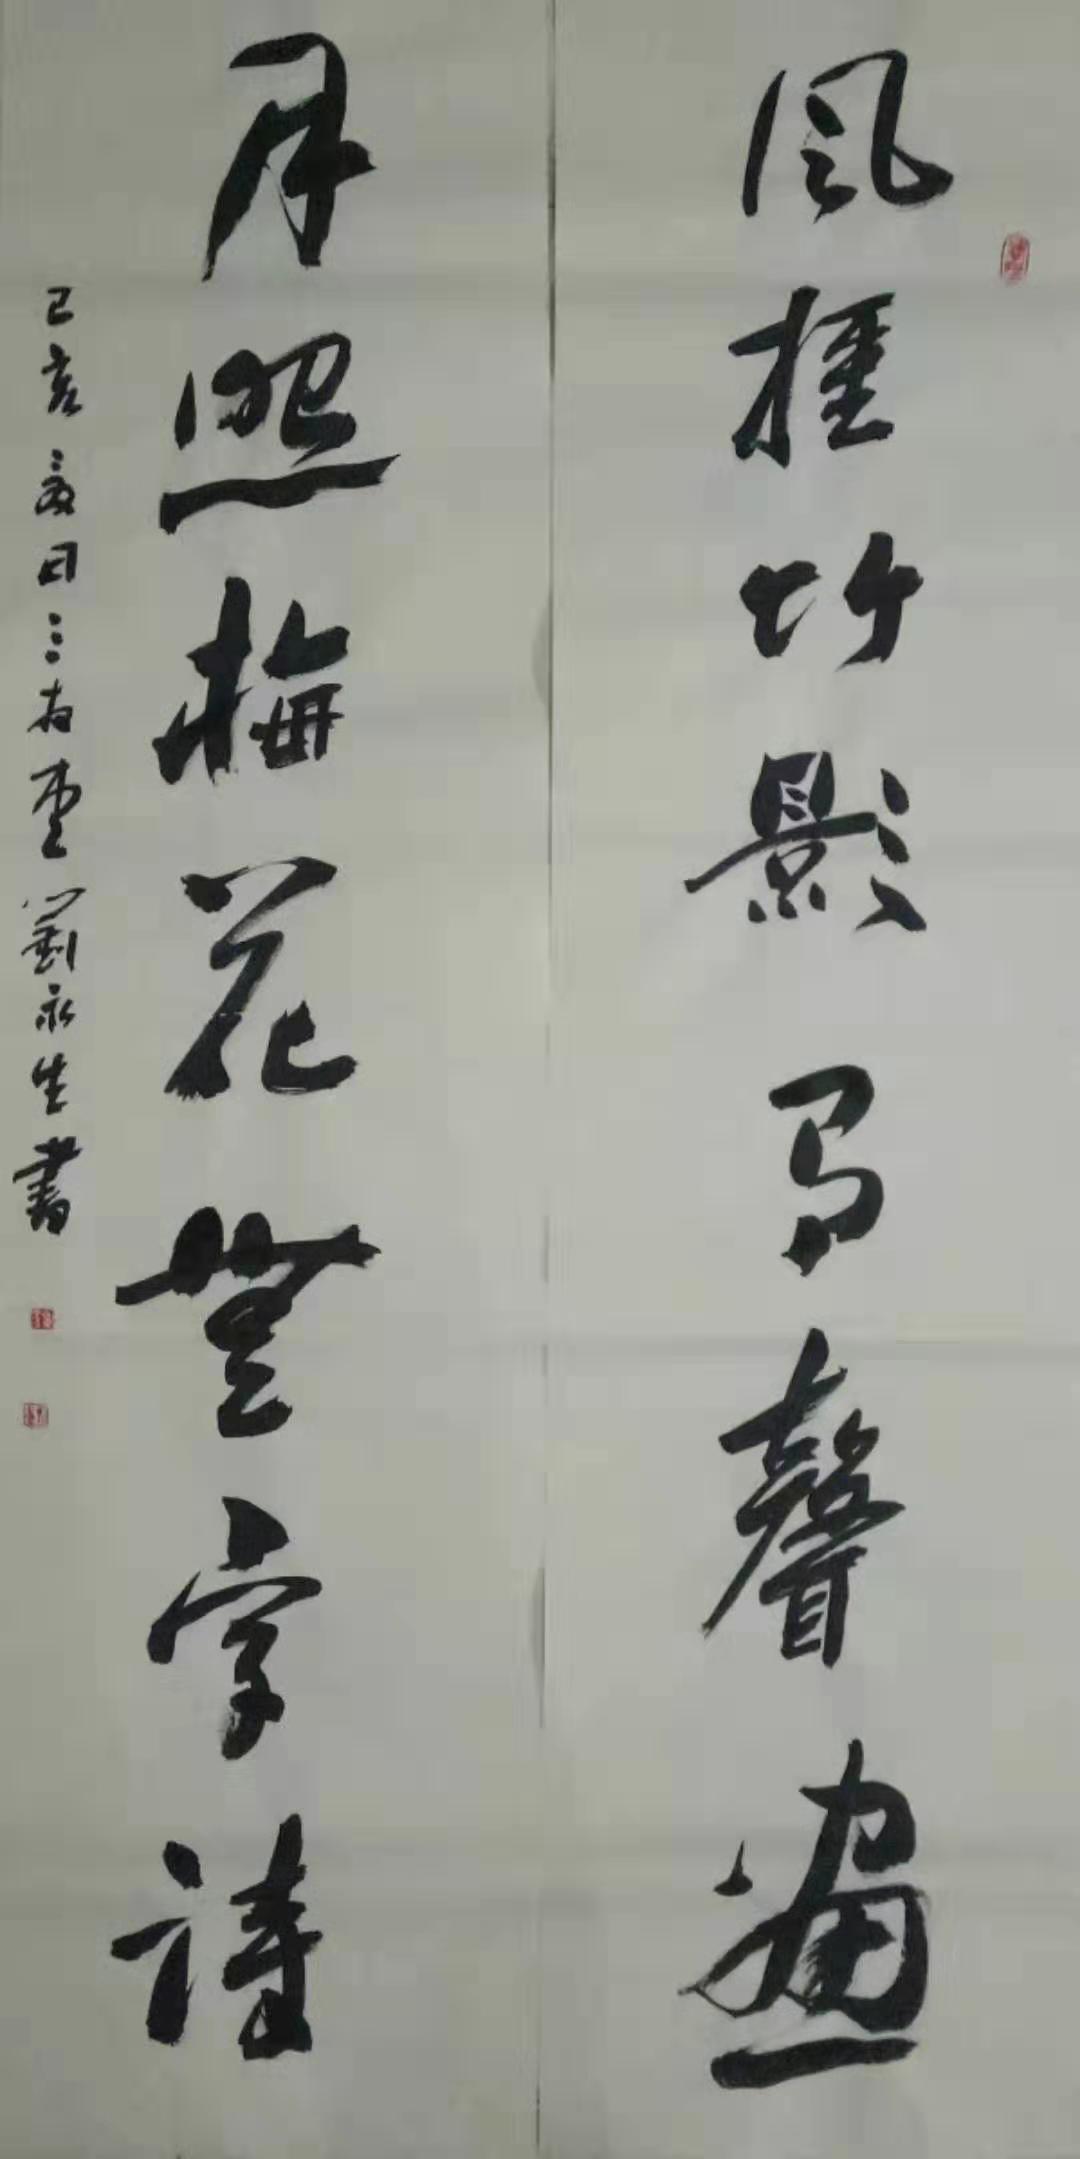 風搖竹影有聲畫
月照梅花無字詩
己亥夏日三堂劉永生書